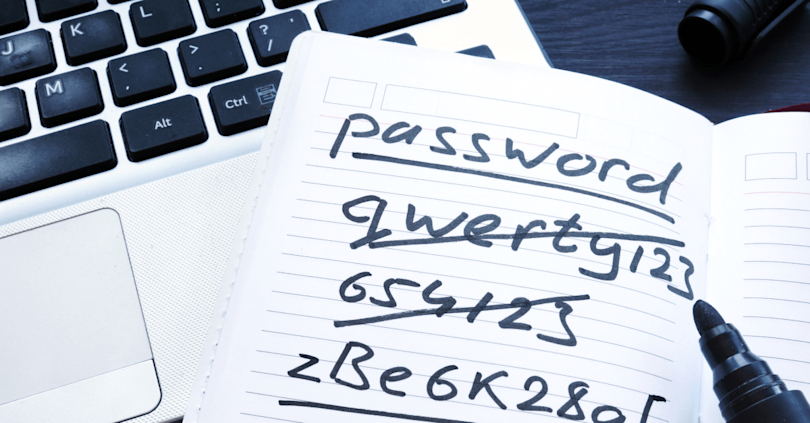 J
K
L
M
< ,
> .
? /
Alt
Ctrl
password
qwerty123
654123